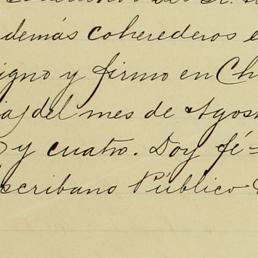 demás coherederos e
igno y firmo en Ch
a) del mes de Agos
y cuatro. Doy fé=
scribano Público